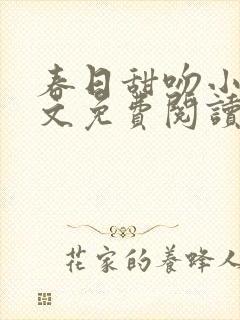 春日甜吻小
文免費閱讀
花家的養蜂人